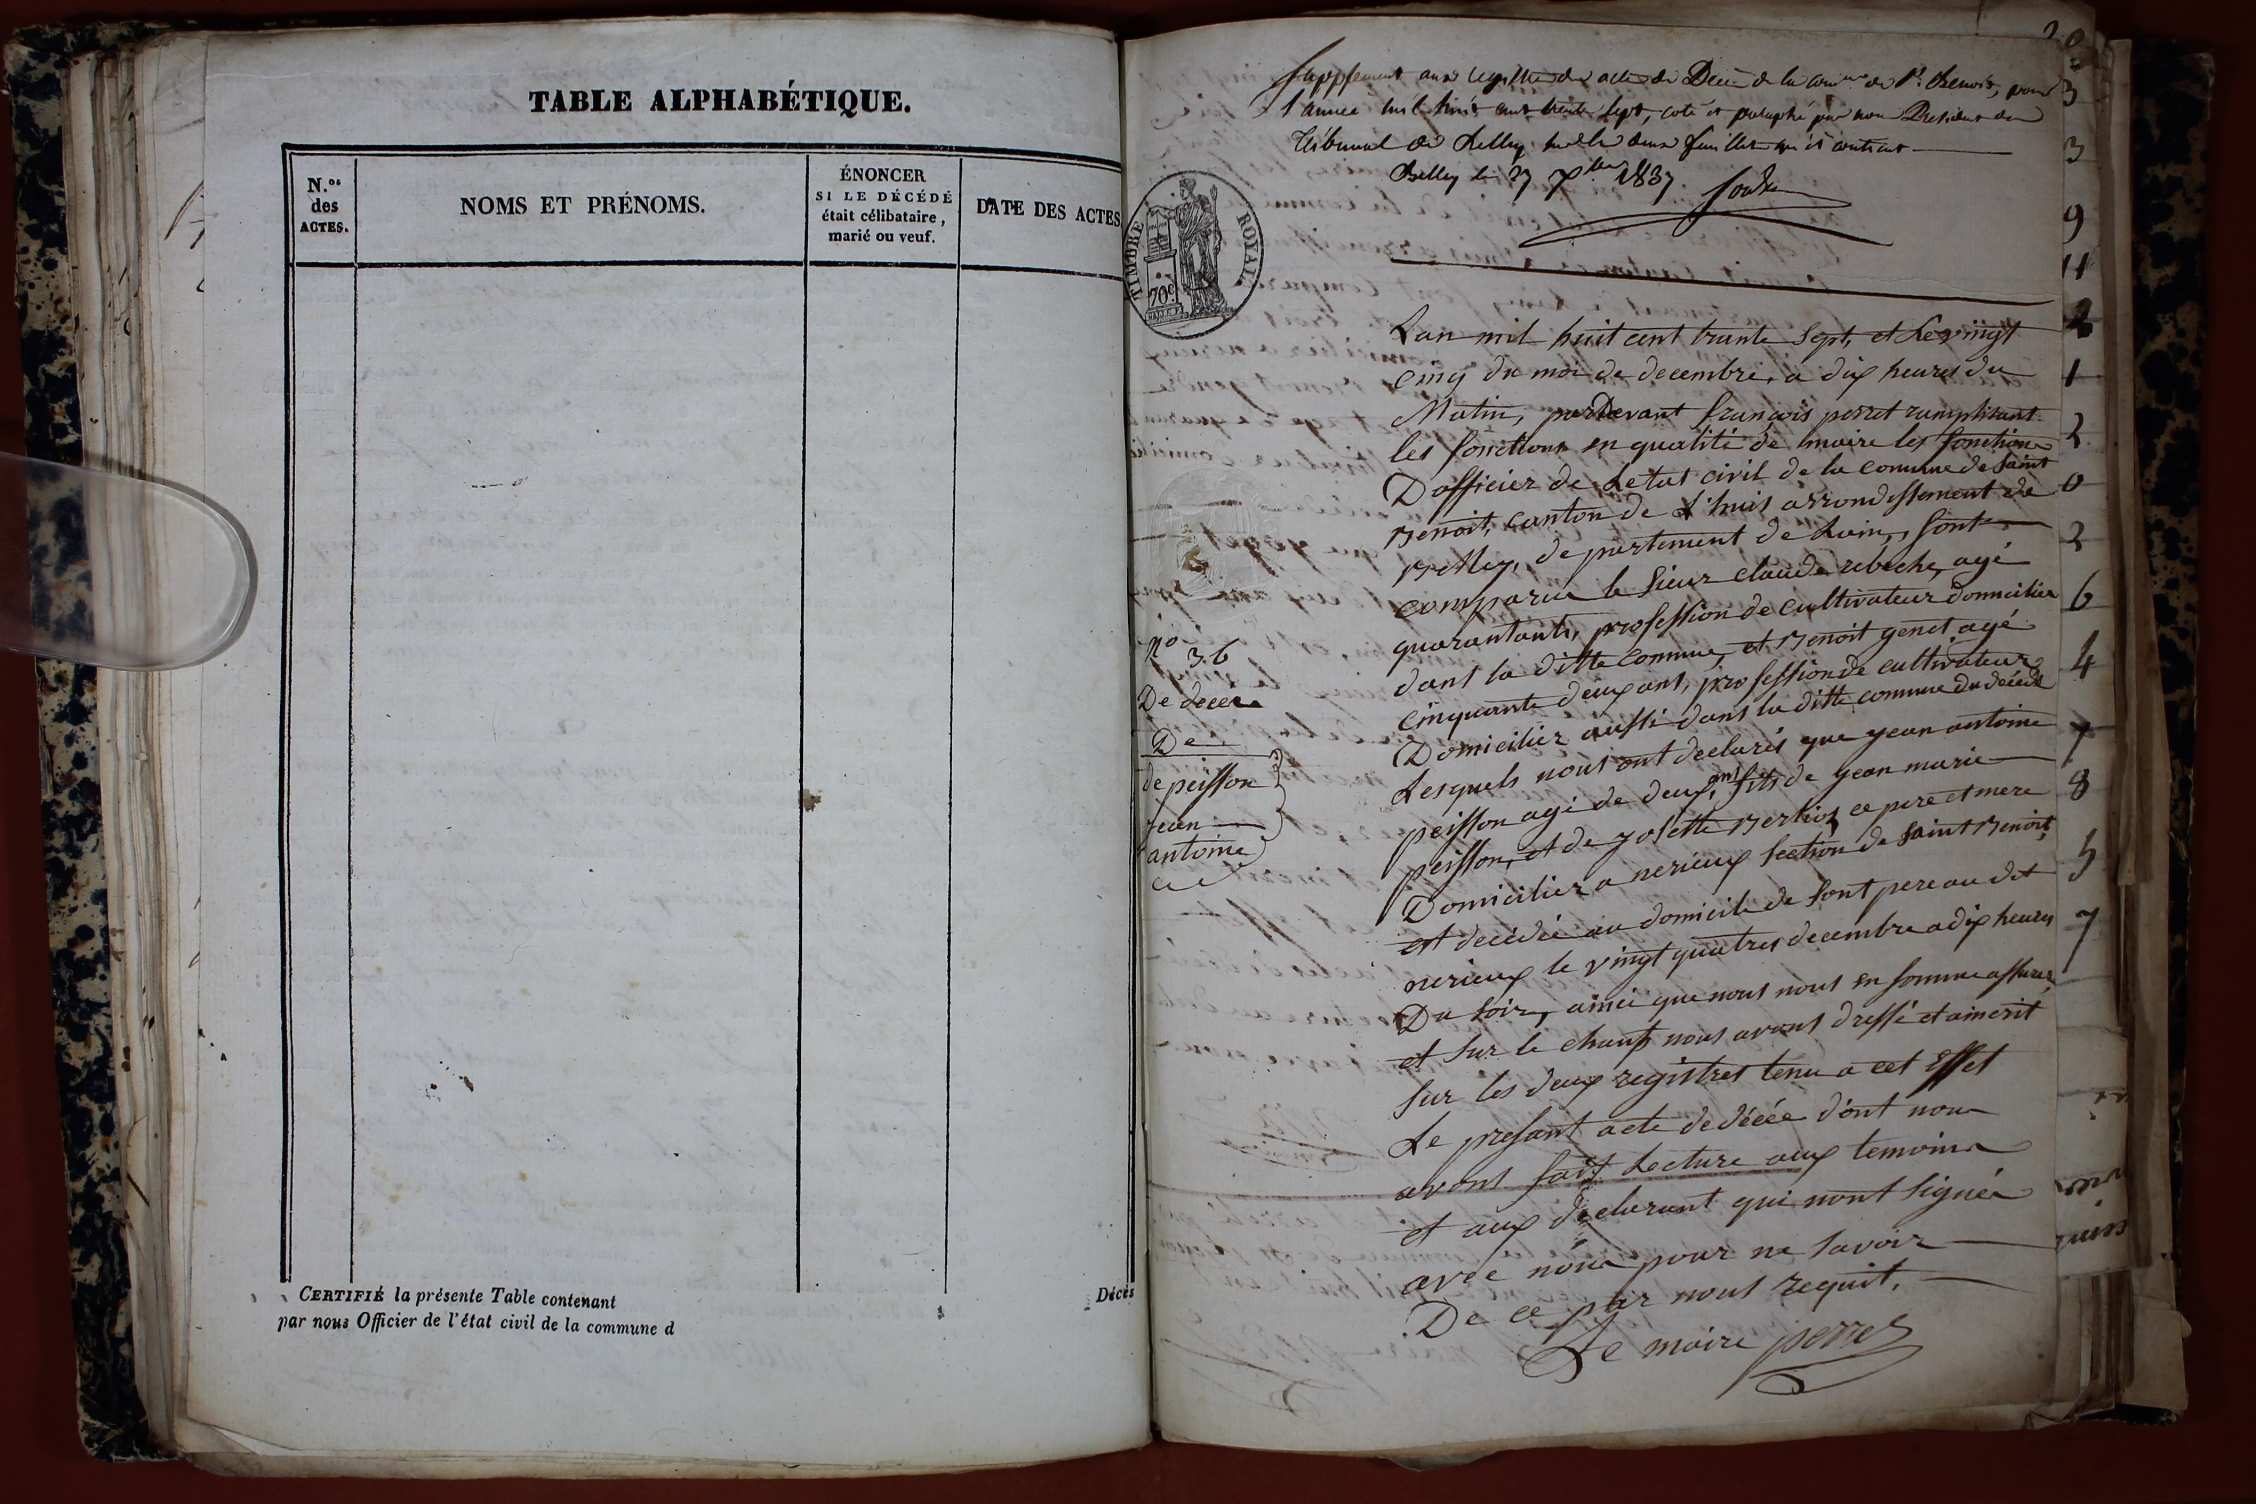 TABLE ALPHABÉTIQUE.
N.os
des
ACTES.
NOMS ET PRÉNOMS.
ÉNONCER
SI LE DÉCÉDÉ
était célibataire,
marié ou veuf.
DATE DES ACTES
CERTIFIÉ la présente Table contenant
Décès
par nous Officier de l'état civil de la commune d
Supplément aux registres des actes de Décès de la comne de St. Benoit, pour
l'année mil huit cent trente sept, coté et paraphé par nous President du
tribunal de Belley
Belley le 27 7bre 1837
TIMBRE ROYAL
70c.
Lan mil huit cent trante sept, et Le vingt
cinq du moi de decembre, a dix heures du
Matin, pardevant françois perret ramplisant
les fonctions en qualité de maire les fonctions
D officier de Letat civil de la comune de Saint
Benoit, canton de L'huis arrondissement de
Belley, de partement de Lain, sont
comparu le Sieur claude rebeche, agé
quarantants, profession de cultivateur domicilier
dans la ditte commune, et Benoit genet agé
cinquante deux ans, profession de cultivateur
Domicilier aussi dans la ditte commune du décédé
Lesquels nous ont declarés que jean antoine
peisson agé de deux ans fils de jean marie
peisson, et de josette Berlioz ce pere et mere
Domicilier a nerieux section de saint Benoit,
est decédé au domicile de sont pere au dit
nerieux le vingt quatres decembre a dix heures
Du soir, ainci que nous nous en somme assurer
et sur le champ nous avons dressé et aincrit
sur les deux registres tenu a cet Effet
Le presant acte de décée dont nous
avons fait Lecture aux temoins
et aux declarant qui nont signée
avec nous pour ne savoir
De ce par nous requit.
Le maire perret
No 36
De décés
De
de peisson
jean
antoine
3
3
9
11
2
1
2
0
2
6
4
7
8
5
7